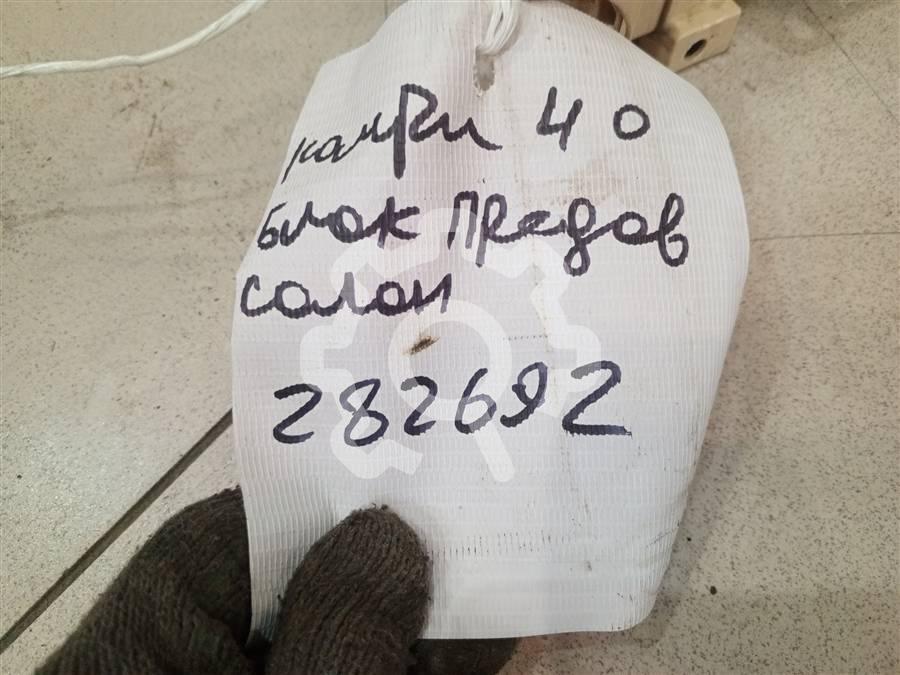 камри 40
блок предов
салон
282692